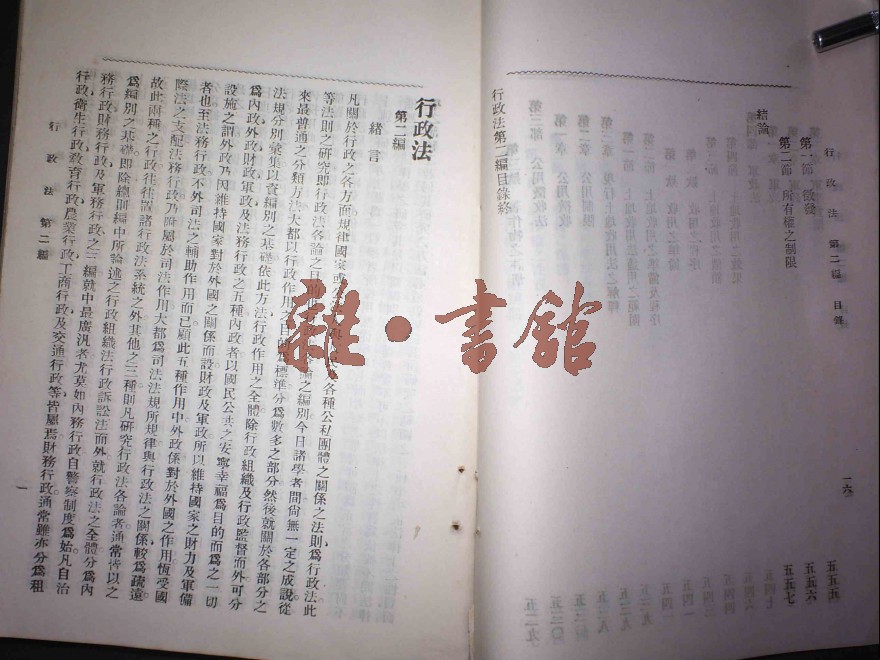 行政法 第二編 目錄
一六
第一節 徵發
五五五
第二節 所有權之制限
五五六
結論
五五七
行政法第二編目錄終
行政法
第二編
緒言
凡關於行政之各方面規律國家或 各種公私團體之關係之法則爲行政法此
等法則之研究即行政法各論之目的 論之編別今日諸學者間尙無一定之成說從
來最普通之分類方法大都以行政作用之目的爲標準分爲數多之部分然後就關於各部分之
法規分別彙集以資編別之基礎依此方法行政作用之全體除行政組織及行政監督而外可分
爲內政外政財政軍政及法務行政之五種內政者以國民公共之安寧幸福爲目的而爲之一切
設施之謂外政乃因維持國家對於外國之關係而設財政及軍政所以維持國家之財力及軍備
者也至法務行政不外司法之輔助作用而已顧此五種作用中外政係對於外國之作用恆受國
際法之支配法務行政乃附屬於司法作用大都爲司法法規所規律與行政法之關係較爲疏遠
故此兩種之行政往往置諸行政法系統之外其他之三種則凡研究行政法各論者通常皆以之
爲編別之基礎即除總則編中所論述之行政組織法行政訴訟法而外就行政法之全體分爲內
務行政財務行政及軍務行政之三編就中最廣汎者尤莫如內務行政自警察制度爲始凡自治
行政衛生行政教育行政農業行政工商行政及交通行政等皆屬焉財務行政通常雖亦分爲租
行政法 第二編
一
雜·書館